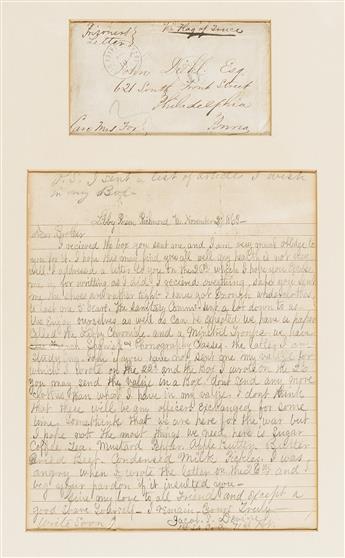 Prizoners
Letter
Via Flag of Truce
John Dehl Esq
621 South Front Street
Philadelphia
Penna
Care Mad For
P.S. I sent a list of articles I wish
in my Box
Libby Prison Richmond Va November 1863
Dear Brother
I recieved the box you sent me, and I am very much oblidge to
you for it. I hope this may find you all well my health is not very
well. I addressed a letter to you on the which I hope you excuse
me for writting as I did. I recieved everything safe you sent
me the shoes are rather tight I have got enough underclothes
to last me a year. The Sanitary Comm. sent a lot down to us
We enjoy ourselves as well as can be expected we have a paper
called the Libby Chronicle and a Minstrel Troupe we have
Spanish Phonography Classes the latter I am
studying. I hope if you have not sent me my valise for
which I wrote on the 22d and the Box I wrote on the 26
you may send the valise in a Box dont send any more
clothes than what I have in my valise. I dont think
that there will be any officers exchanged for some
time. some think that we are here for the war but
I hope not the most things we need here is Sugar
Coffee Tea Mustard Pepper Apple Butter Butter
Dried Beef Condensed Milk Pickles. I was
angry when I wrote the letter on the 6th and I
beg your pardon if it insulted you
Give my love to all Friends and Except a
good share to yourself. I remain Yours Truly
Write Soon
Jacob